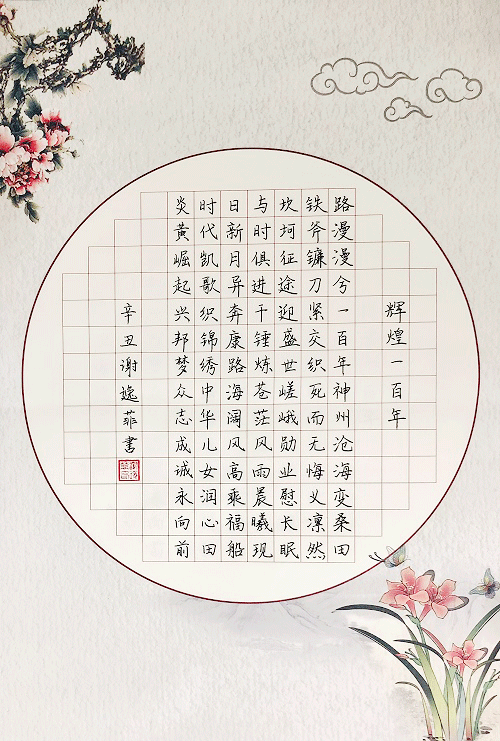 辉煌一百年
路漫漫兮一百年神州沧海变桑田
铁斧镰刀紧交织死而无悔义凛然
坎坷征途迎盛世嵯峨勋业慰长眠
与时俱进千锤炼苍茫风雨晨曦现
日新月异奔康路海阔风高乘福船
时代凯歌织锦绣中华儿女润心田
炎黄崛起兴邦梦众志成诚永向前
辛丑谢逸菲书